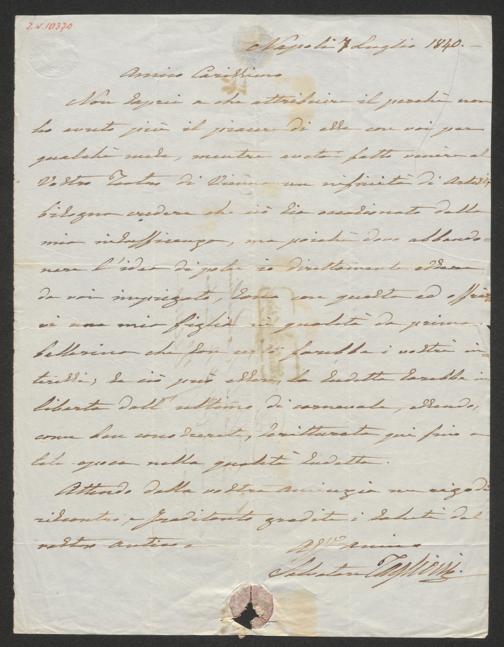 I.N.10370
Napoli 7 Luglio 1840.
Amico Carissimo
Non saprei a che attribuire il perchè non
ho avuto più il piacere di esser con voi per
qualche mese, mentre avete fatto venire al
Vostro Teatro di Vienna una infinità di Artisti,
bisogna credere che ciò sia cagionato dalla
mia insufficenza, ma poichè devo abbando-
nare l'idea di poter io direttamente essere
da voi impiegato, sono con questa ad offrir-
vi una mia figlia in qualità di prima
ballerina che son farebbe i vostri in-
teressi; se ciò può essere, la sudetta sarebbe in
libertà dall'ultimo di carnevale, essendo,
come ben considererete, scritturata qui fino a
tale epoca nella qualità sudetta.
Attendo dalla vostra amicizia un
riscontro, e gradite i saluti del
vostro antico
Aff.mo amico
Salvatore Taglioni